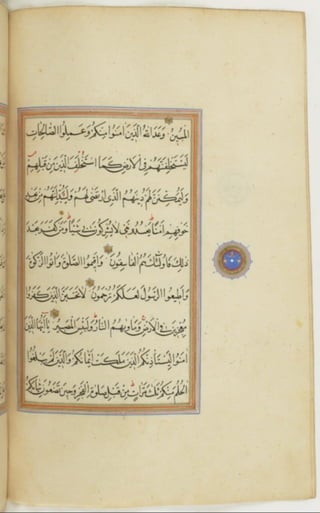 المبين وعد الله الذين امنوا منكم وعملوا الصالحات
ليستخلفنهم في الارض كما استخلف الذين من قبلهم
وليمكنن لهم دينهم الذي ارتضى لهم وليبدلنهم من بعد
خوفهم امنا يعبدونني لا يشركون بي شيئا ومن كفر بعد
ذلك فاولئك هم الفاسقون واقيموا الصلوة واتوا الزكوة
واطيعوا الرسول لعلكم ترحمون لا تحسبن الذين كفروا
معجزين في الارض ومأويهم النار ولبئس المصير يا ايها الذين
امنوا ليستأذنكم الذين ملكت ايمانكم والذين لم يبلغوا
الحلم منكم ثلث مرات من قبل صلوة الفجر وحين تضعون ثيابكم